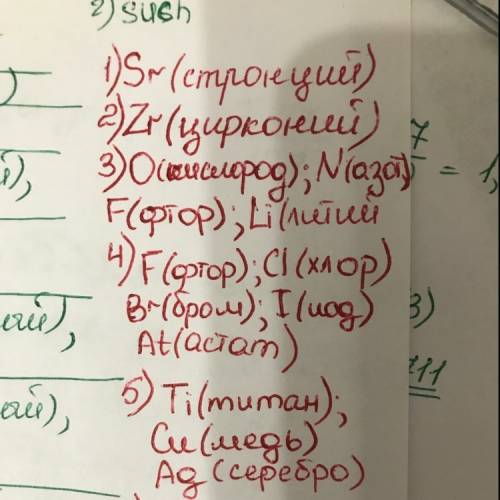 2) sush
1) Sr (стронций)
2) Zr (цирконий)
3) O (кислород); N (азот)
F (фтор); Li (литий
4) F (фтор); Cl (хлор)
Br (бром); I (иод)
At (астат)
5) Ti (титан);
Cu (медь)
Ag (серебро)
7
= 1,
3)
111